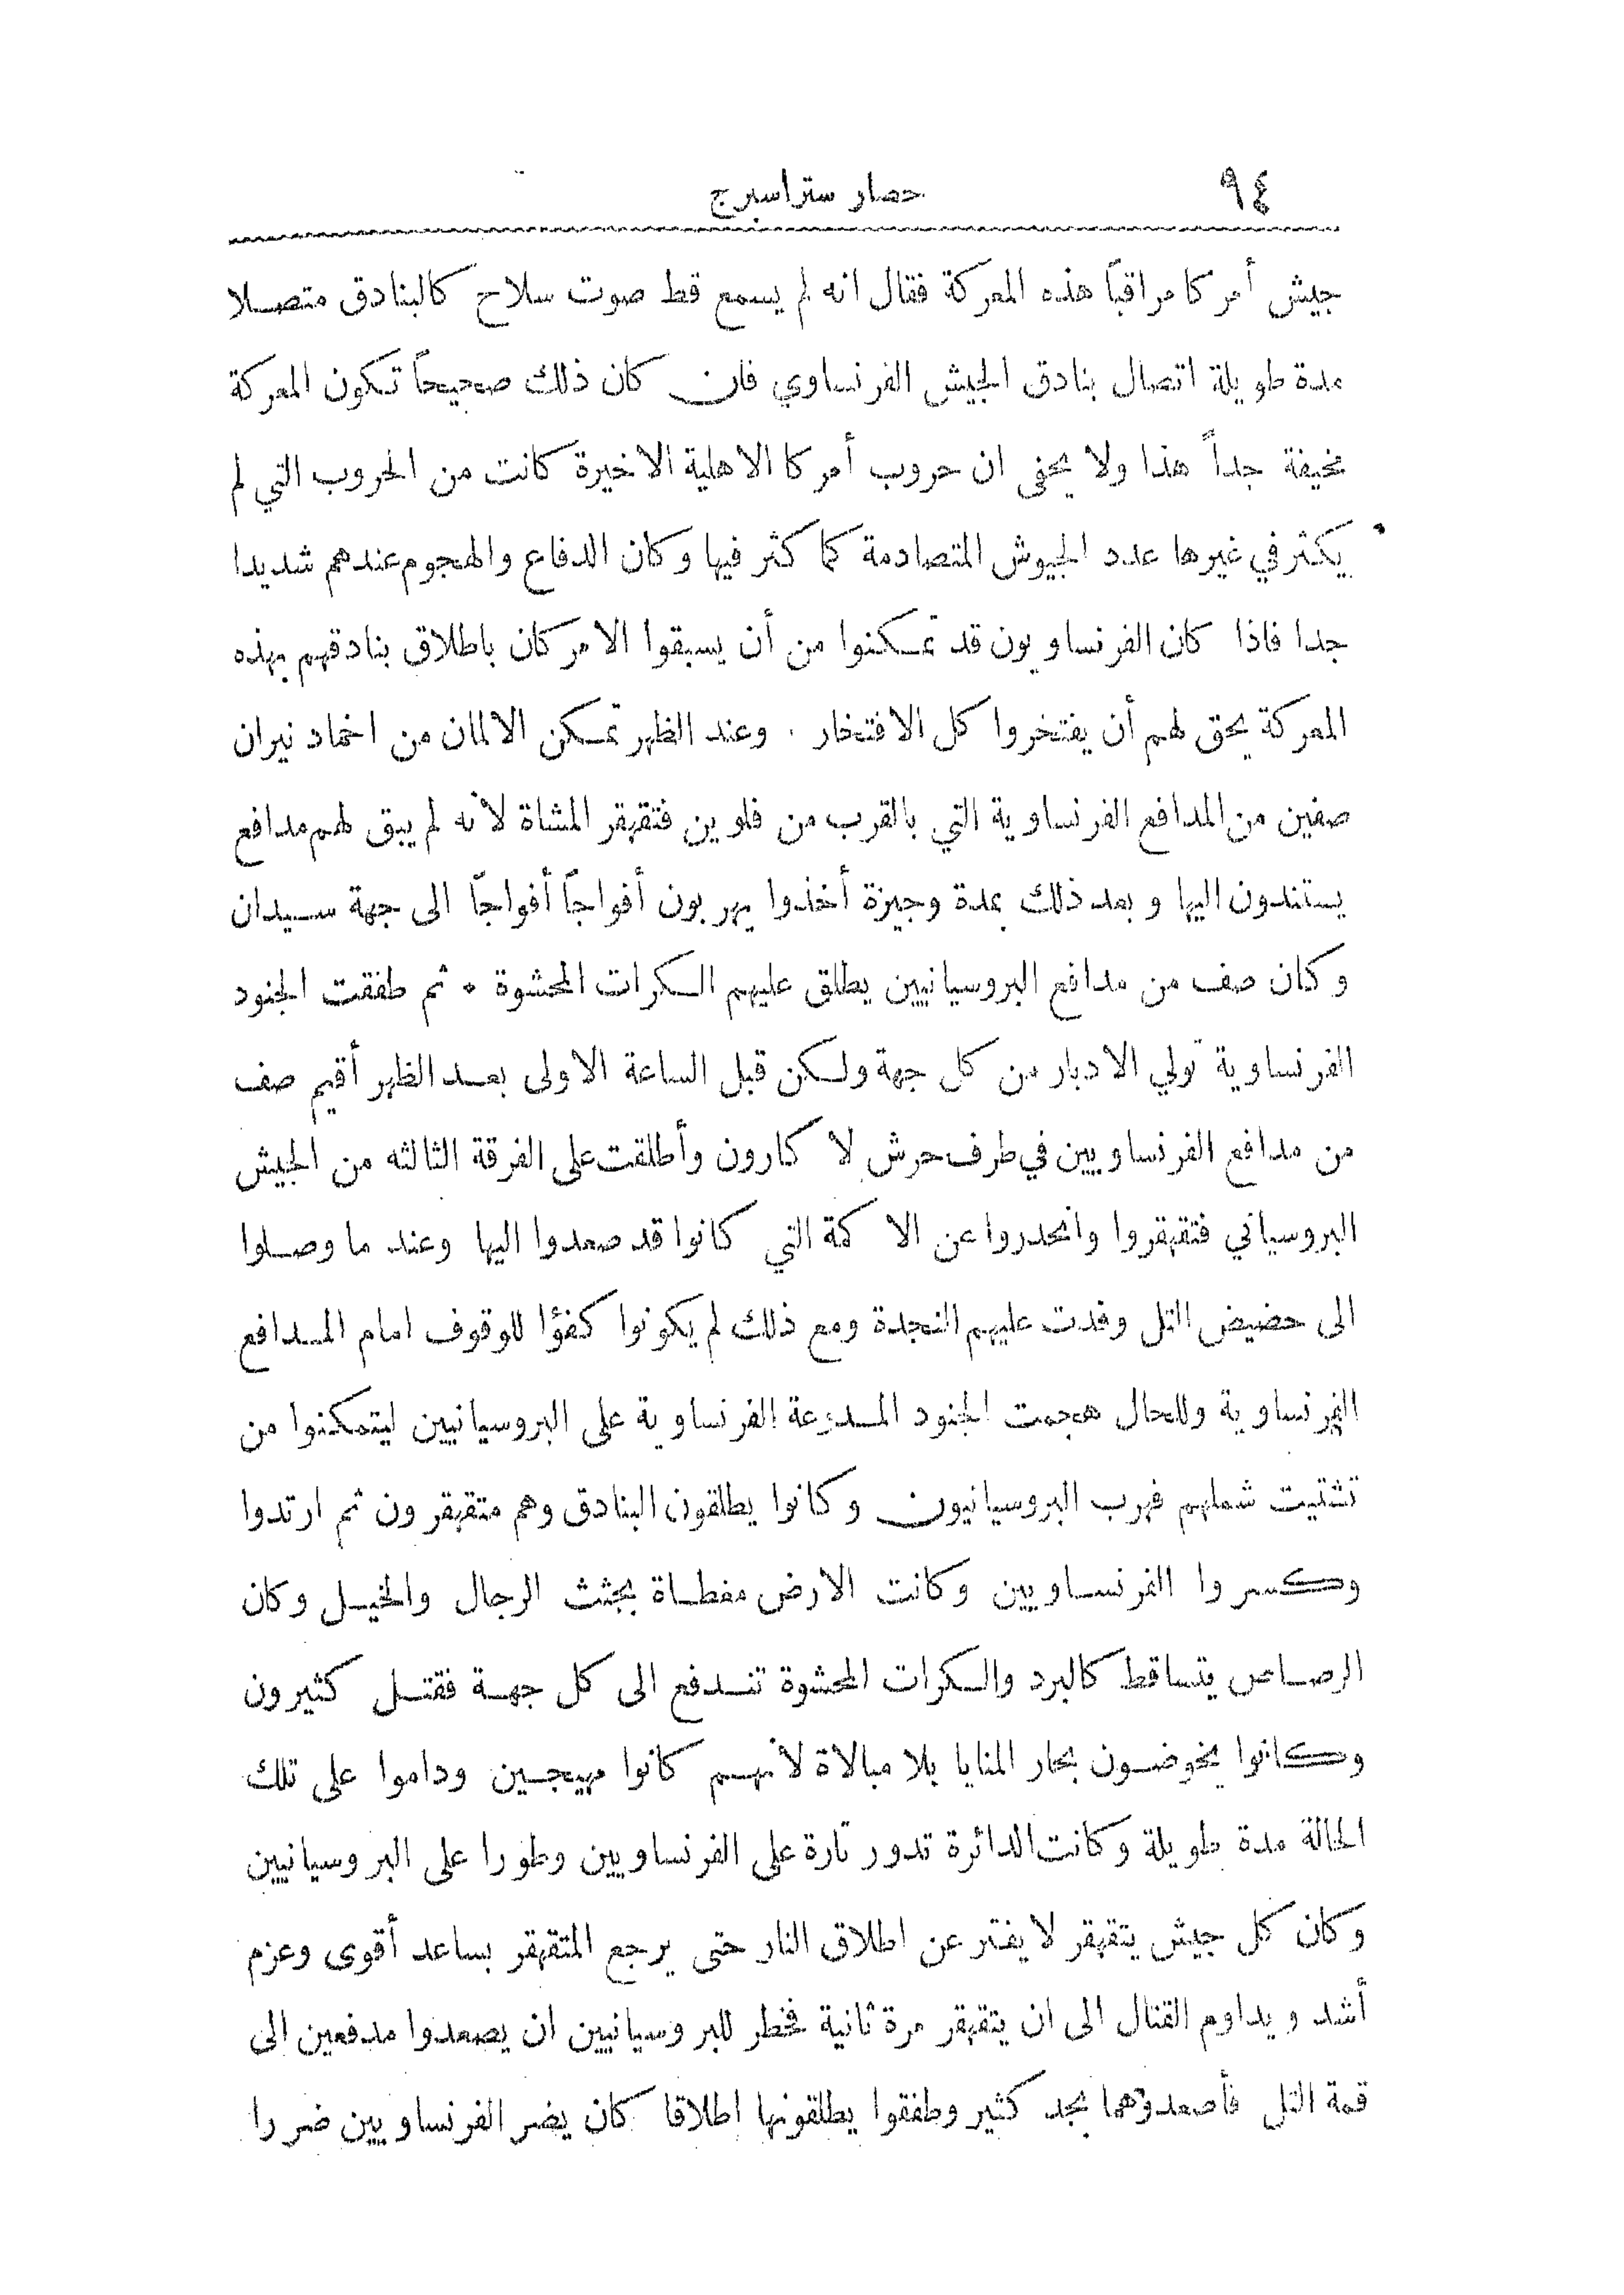 ٩٤
حصار ستراسبرج
جيش أمركا مراقباً هذه المعركة فقال انه لم يسمع قط صوت سلاح كالبنادق متصلا
مدة طويلة اتصال بنادق الجيش الفرنساوي فان كان ذلك صحيحاً تكون المعركة
مخيفة جداً هذا ولا يخفى ان حروب أمركا الاهلية الاخيرة كانت من الحروب التي لم
يكثر في غيرها عدد الجيوش المتصادمة كما كثر فيها وكان الدفاع والهجوم عندهم شديدا
جدا فاذا كان الفرنساويون قد تمكنوا من أن يسبقوا الامركان باطلاق بنادقهم بهذه
المعركة يحق لهم أن يفتخروا كل الافتخار . وعند الظهر تمكن الالمان من اخماد نيران
صفين من المدافع الفرنساوية التي بالقرب من فلوين فتقهقر المشاة لانه لم يبق لهم مدافع
يستندون اليها وبعد ذلك بمدة وجيزة أخذوا يهربون أفواجاً أفواجاً الى جهة سيدان
وكان صف من مدافع البروسيانيين يطلق عليهم الكرات المحشوة . ثم طفقت الجنود
الفرنساوية تولي الادبار من كل جهة ولكن قبل الساعة الاولى بعد الظهر أقيم صف
من مدافع الفرنساويين في طرف حرش لا كارون وأطلقت على الفرقة الثالثه من الجيش
البروسياني فتقهقروا وانحدروا عن الاكمة التي كانوا قد صعدوا اليها وعند ما وصلوا
الى حضيض التل وفدت عليهم النجدة ومع ذلك لم يكونوا كفؤا للوقوف امام المدافع
الفرنساوية وللحال هجمت الجنود المدرعة الفرنساوية على البروسيانيين ليتمكنوا من
تشتيت شملهم فهرب البروسيانيون وكانوا يطلقون البنادق وهم متقهقرون ثم ارتدوا
وكسروا الفرنساويين وكانت الارض مغطاة بجثث الرجال والخيل وكان
الرصاص يتساقط كالبرد والكرات المحشوة تندفع الى كل جهة فقتل كثيرون
وكانوا يخوضون بحار المنايا بلا مبالاة لانهم كانوا مهيجين وداموا على تلك
الحالة مدة طويلة وكانت الدائرة تدور تارة على الفرنساويين وطورا على البروسيانيين
وكان كل جيش يتقهقر لا يفتر عن اطلاق النار حتى يرجع المتقهقر بساعد أقوى وعزم
أشد ويداوم القتال الى ان يتقهقر مرة ثانية فخطر للبروسيانيين ان يصعدوا مدفعين الى
قمة التل فأصعدوهما بجد كثير وطفقوا يطلقونها اطلاقا كان يضر الفرنساويين ضررا